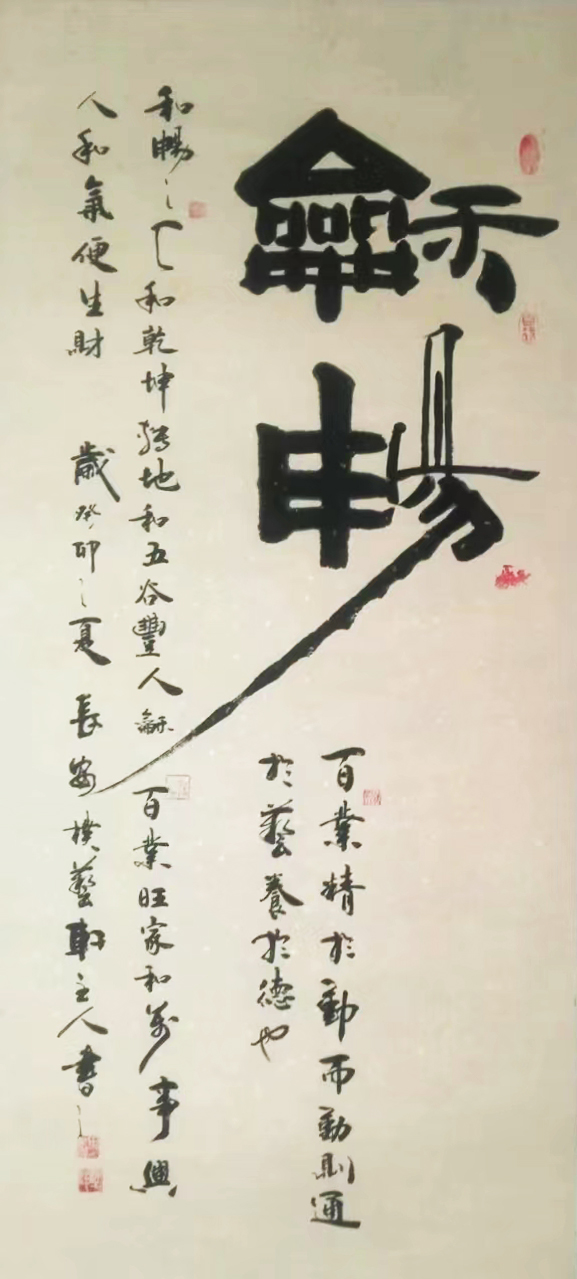 龢暢
百業精於勤而勤則通
於藝養於德也
和暢之天和乾坤轉地和五谷豐人龢百業旺家和萬事興
人和氣便生財 歲癸卯之夏 長安樸藝軒主人書之